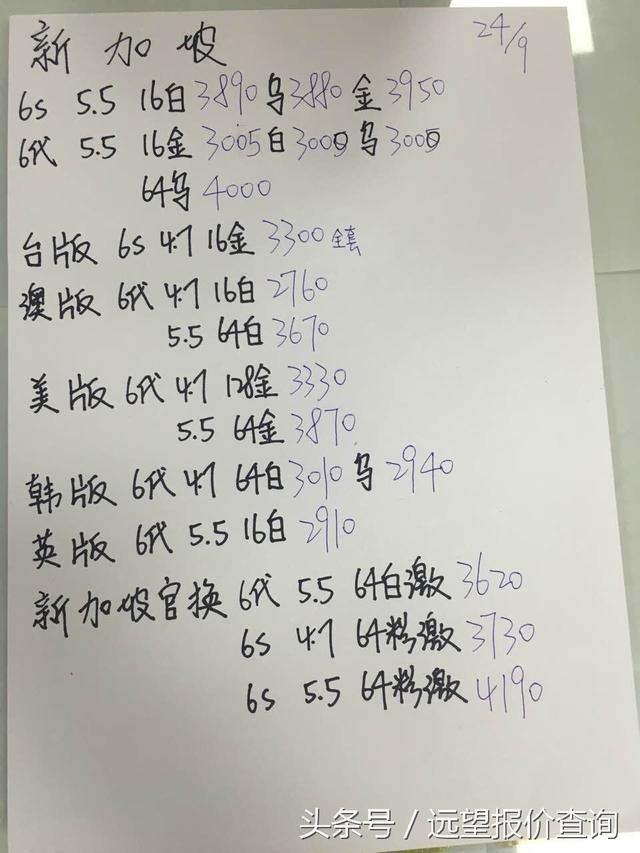 新加坡 24/9
6s 5.5 16白3890乌3880金3950
6代 5.5 16金3005白3000乌3000
64乌4000
台版 6s 4.7 16金3300全套
澳版 6代 4.7 16白2760
5.5 64白3670
美版 6代 4.7 128金3330
5.5 64金3870
韩版 6代 4.7 64白3010乌2940
英版 6代 5.5 16白2910
新加坡官换 6代 5.5 64白激3620
6s 4.7 64粉激3730
6s 5.5 64粉激4190
头条号 / 远望报价查询